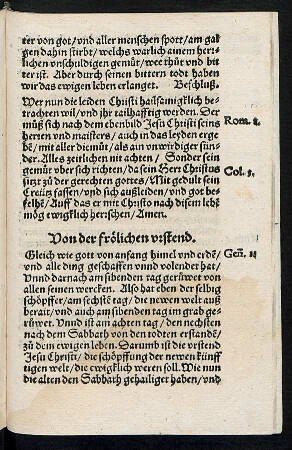 ter von got/ vnd aller menschen spott/ am gal⸗
gen dahin stirbt/ welchs warlich ainem hertz⸗
lichen vnschuldigen gemüt/ wee thüt vnd bit
ter ist. Aber durch seinen bittern todt haben
wir das ewigen leben erlanget. Beschluß.
Wer nun die leiden Christi hailsamigklich be⸗
trachten wil/ vnd jhr tailhafftig werden. Der
müß sich nach dem ebenbild Jesu Christi seins
herren vnd maisters/ auch in das leyden erge
bē/ mit aller diemüt/ als ain vnwirdiger sün⸗
der. Alles zeitlichen nit achten/ Sonder sein
gemüt vber sich richten/ da sein Herr Christus
sitzt zu der gerechten gottes/ Mit gedult sein
Creütz fassen/ vnd sich außleiden/ vnd got be⸗
felhē/ Auff das er mit Christo nach disem lebē
mög ewigklich herschen/ Amen.
Rom. 8.
Col. 3.
Von der frölichen vrstend.
Gleich wie gott von anfang himel vnd erdē/
vnd alle ding geschaffen vnnd volendet hat/
Vnnd darnach am sibenden tag gerüwet von
allen seinen wercken. Also hat eben der selbig
schöpffer/ am sechstē tag/ die newen welt auß
berait/ vnd auch am sibenden tag im grab ge⸗
rüwet. Vnnd ist am achten tag/ den nechsten
nach dem Sabbath von den todten erstandē/
zu dem ewigen leben. Darumb ist die vrstend
Jesu Christi/ die schöpffung der newen künff
tigen welt/ die ewigklich weren soll. Wie nun
die alten den Sabbath gehailiger haben/ vnd